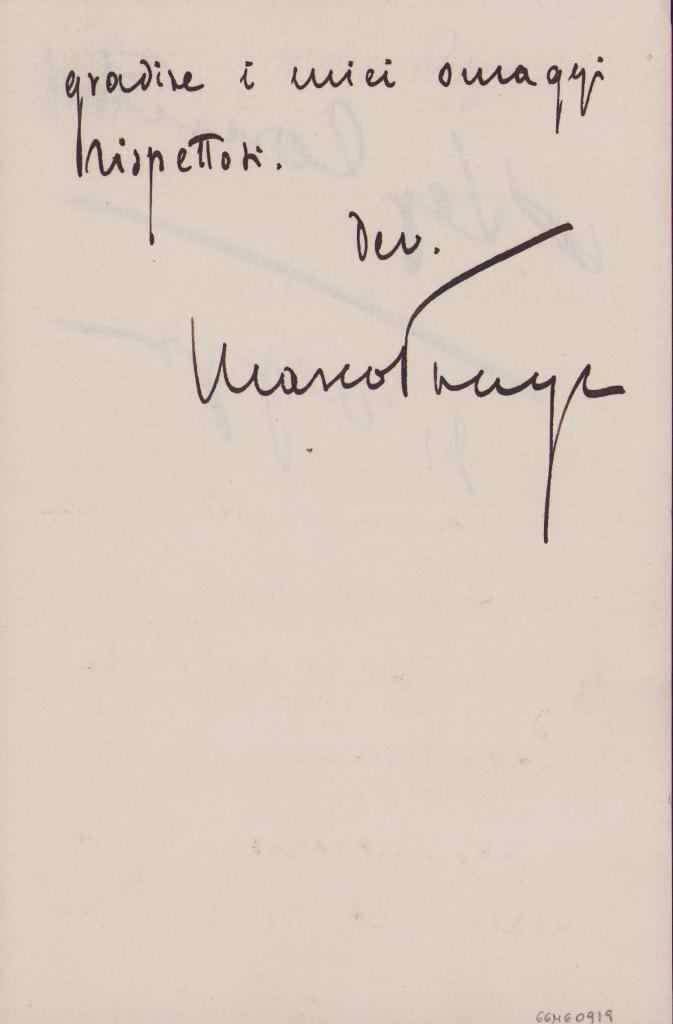 gradire i miei omaggi
rispettosi.
Dev.
Marco Praga
66M60919